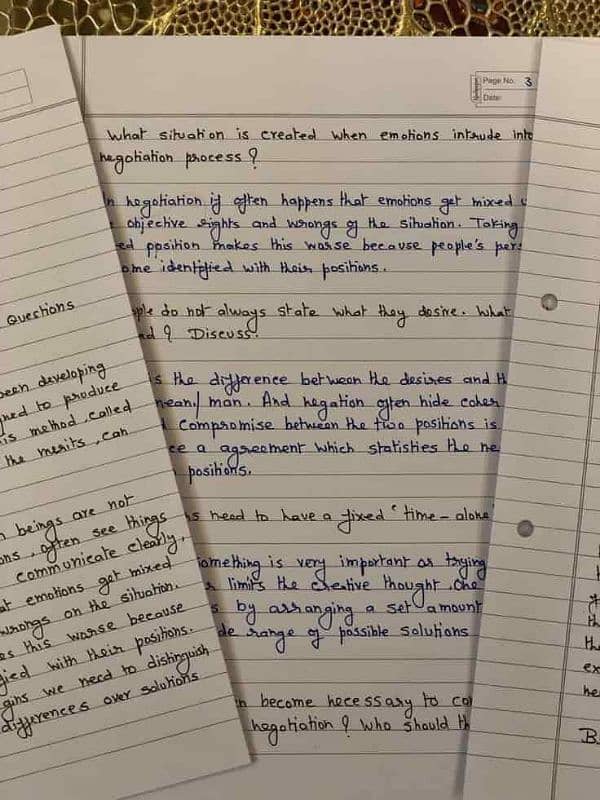 Page No. 3
Date:
What situation is created when emotions intrude into
negotiation process ?
In negotiation if often happens that emotions get mixed
objective rights and wrongs of the situation. Taking
position makes this worse because people's
identified with their positions.
do not always state what they desire. What
? Discuss.
is the difference between the desires and
man. And negation often hide
compromise between the two positions is
a agreement which statisties the
positions.
need to have a fixed "time - alone
something is very important as trying
limits the creative thought. One
by arranging a set amount
range of possible solutions
become necessary to
negotiation ? Who should
Questions
been developing
to produce
method, called
the merits, can
beings are not
often see things
communicate clearly,
emotions get mixed
wrongs on the situation.
this worse because
with their positions.
we need to distinguish
differences over solutions
B